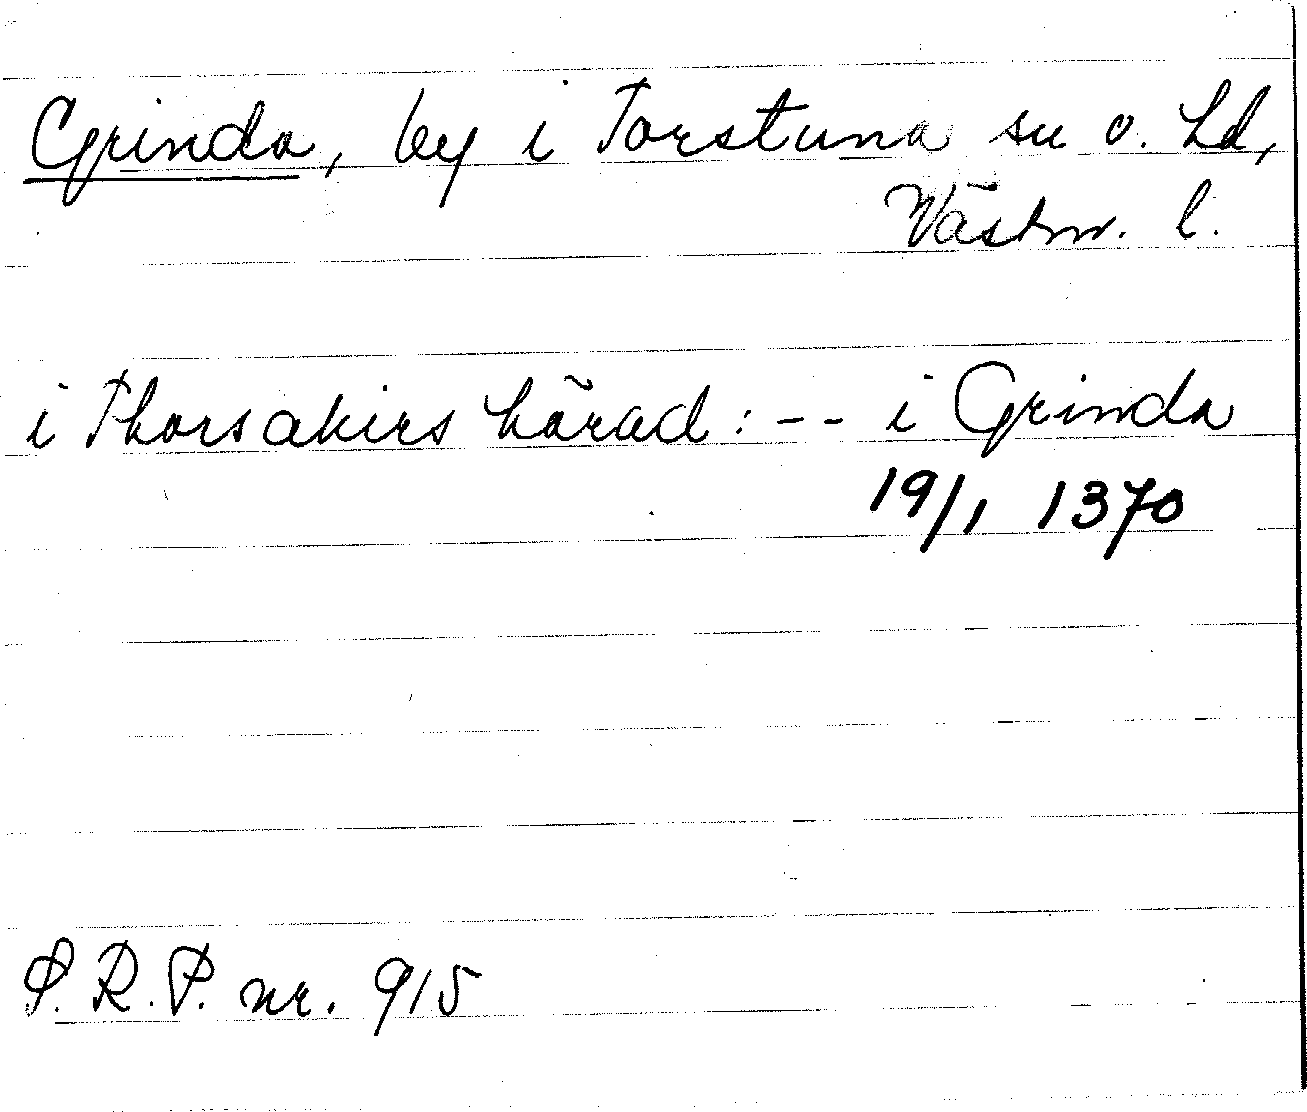 Grinda, by i Torstuna sn o. hd,
Västm. l.
i Thorsakirs härad: -- i Grinda
19/1 1370
S.R.P. nr. 915